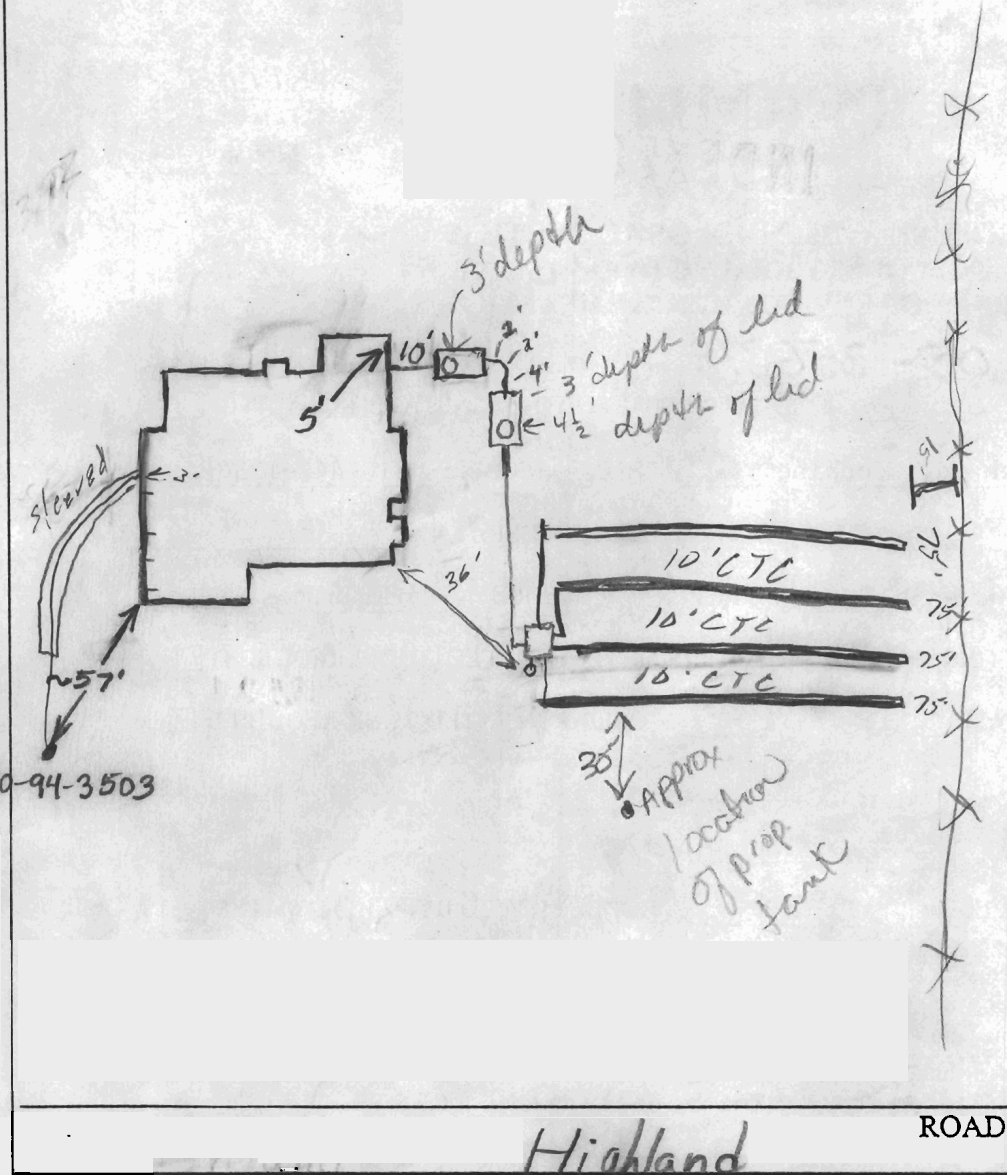 3' depth
2'
2'
4'
10'
3' depth of lid
4½' depth of lid
5'
sleeved
3'
36'
15'
10' CTC
10' CTC
10' CTC
75'
75'
75'
75'
~57'
30'
0-94-3503
Approx
location
of prop
tank
ROAD
Highland